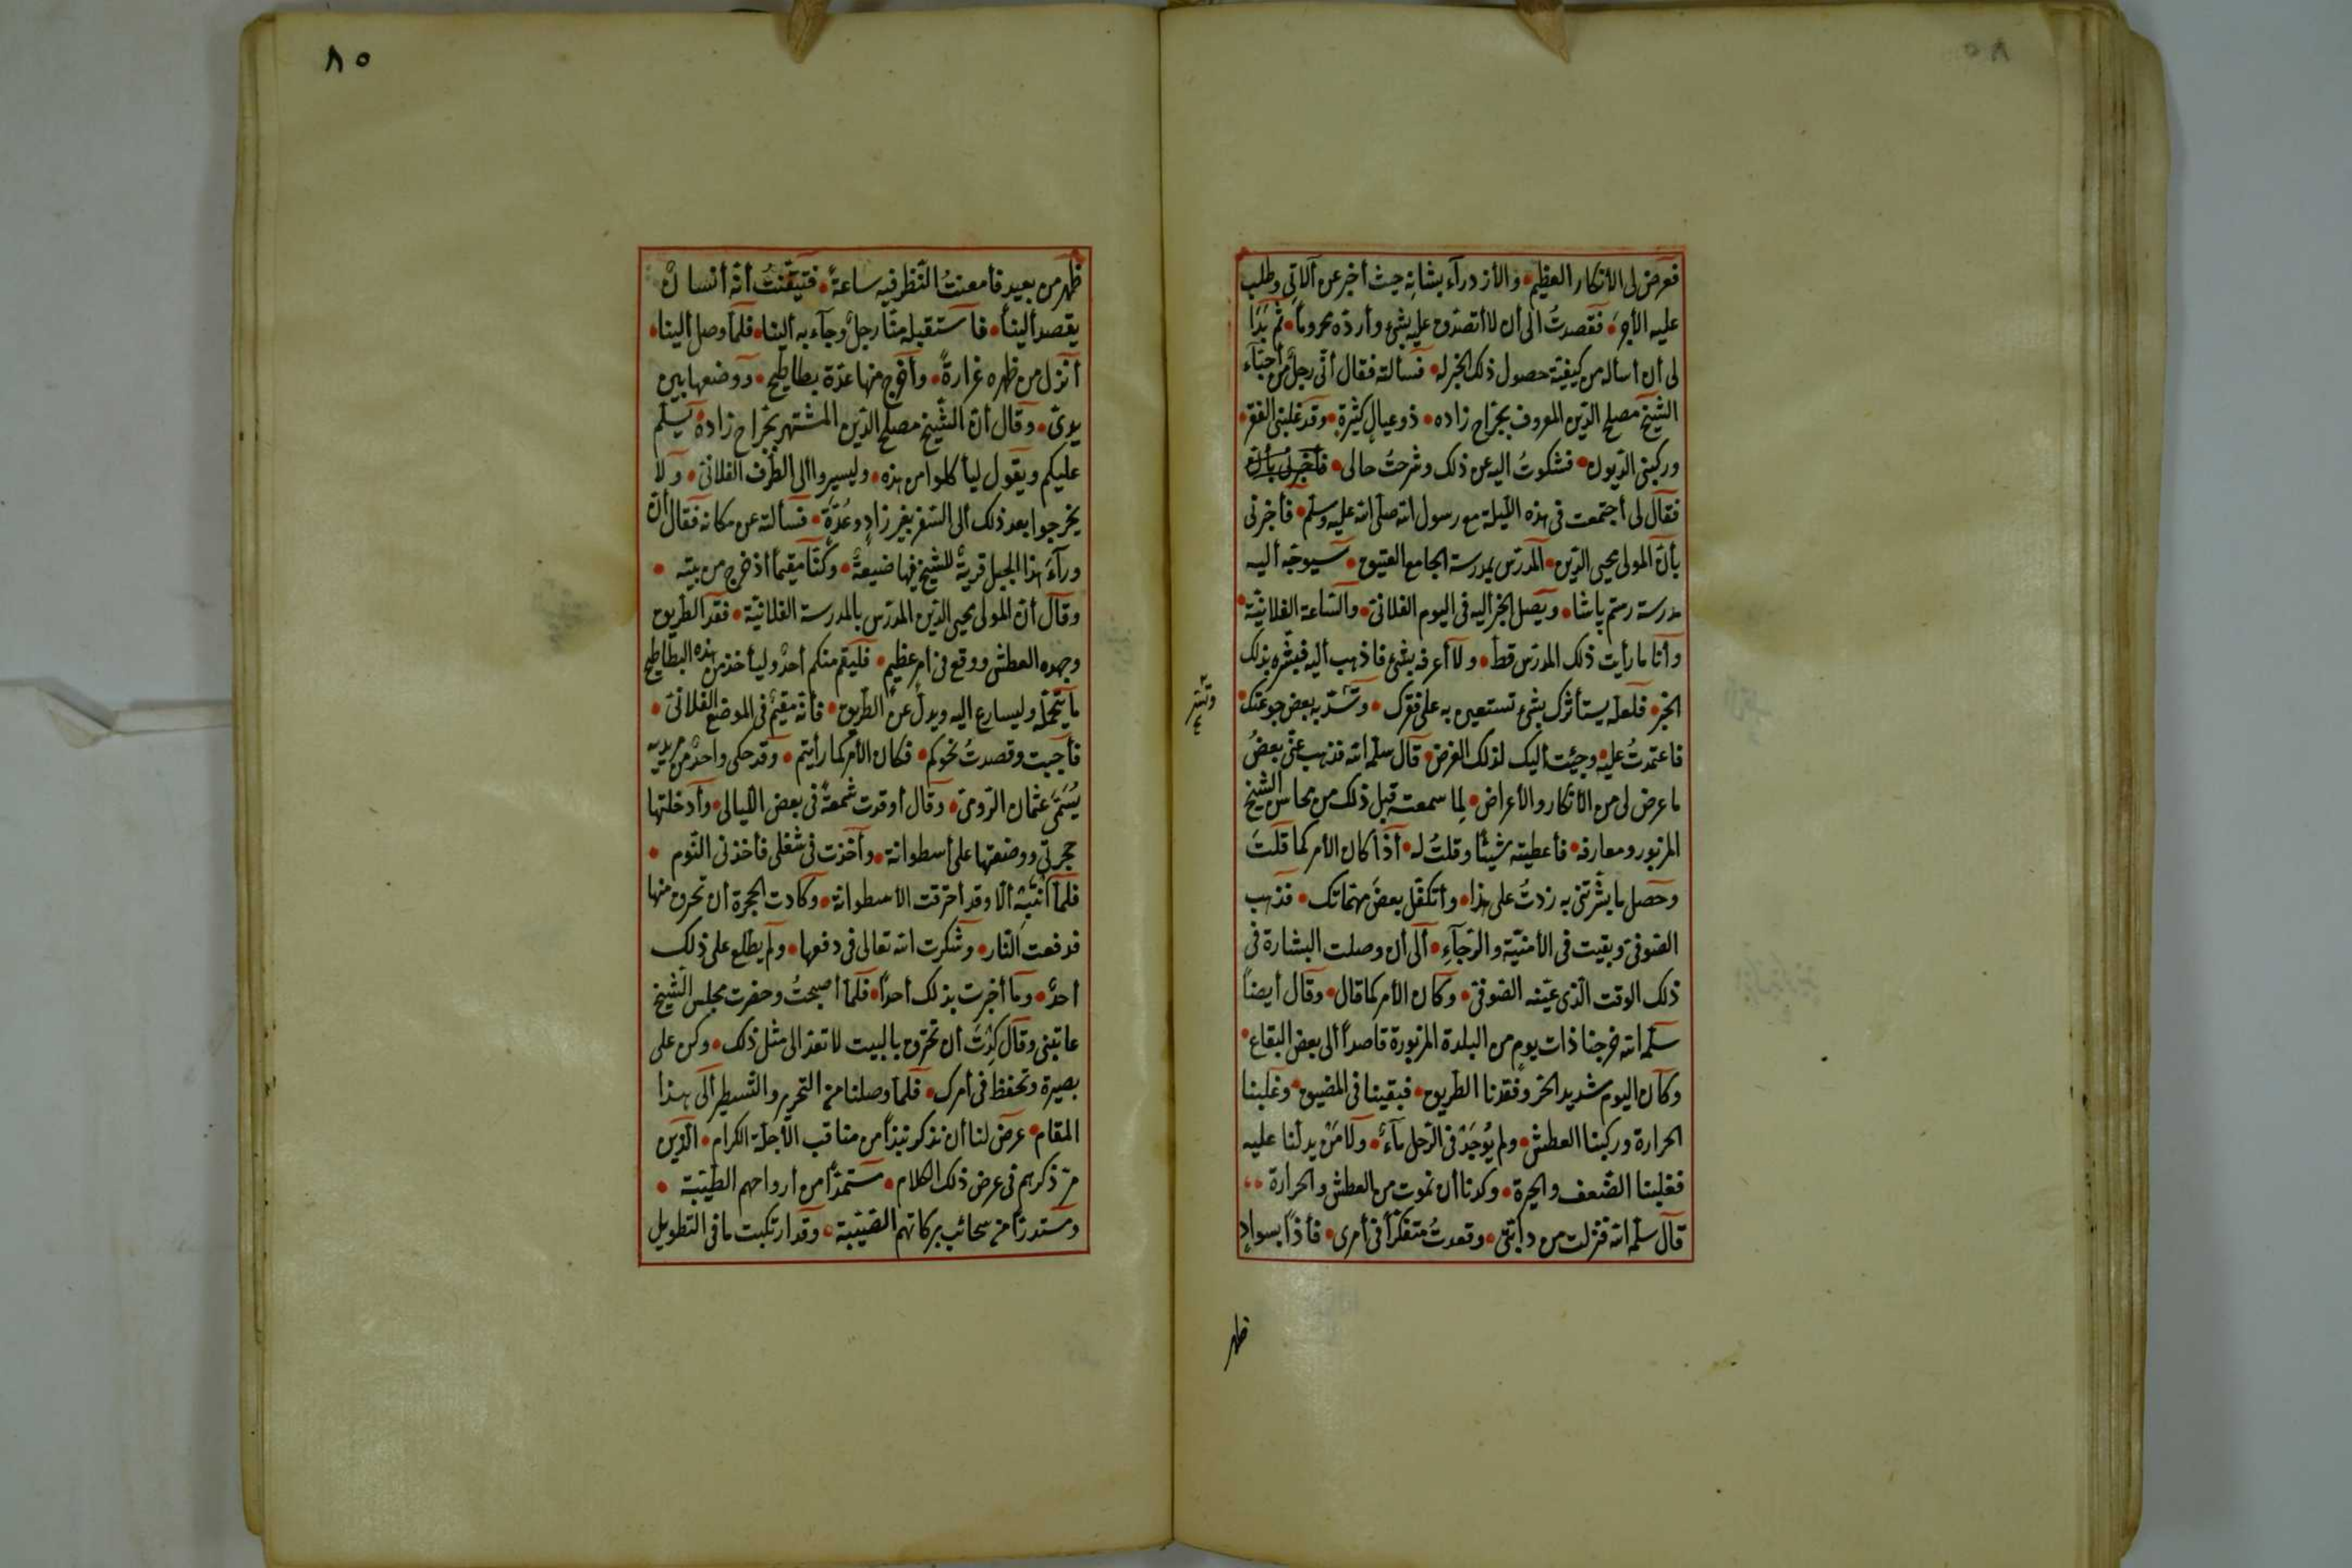 فعرض لى الأنكار العظيم • والأزدرآء بشانه حيث أخبر عن آلاتى وطلب
عليه الأجرَ • فقصدتُ الى أن لا أتصدّق عليه بشئ وأردّه محروماً • ثم بَدَا
لى أن أسأله من كيفيّة حصول ذلك الخبر له • فسألته فقال أنّى رجل من أحبّاء
الشّيخ مصلح الدّين المعروف بجرّاح زاده • ذو عيالٍ كثيرةٍ • وقد غلبنى الفقر •
وركبنى الدّيون • فشكوتُ اليه عن ذلك وشرحتُ حالى •
فقال لى أجتمعت فى هذه اللّيلة مع رسول الله صلى الله عليه وسلم • فأخبرنى
بأنّ المولى محيى الدّين • المدرّس بمدرسة الجامع العتيق • سيوجّه أليه
مدرسة رستم پاشا • ويَصل الخبر أليه فى اليوم الفلانىّ • والسّاعة الفلانيّة •
وأنا ما رأيت ذلك المدرّس قطّ • ولا أعرفه بشئ فاذهب أليه فبشّره بذلك
الخبر • فلعلّه يستأثرك بشئ تستعين به على فقرك • وتسُدّ به بعض جوعتك •
فاعتمدتُ عليه وجئت أليك لذلك الغرض • قال سلّمه الله فذهب عنّى بعضُ
ما عرض لى من الأنكار والأعراض • لِما سمعته قبل ذلك من محاسن الشّيخ
المزبور ومعارفه • فأعطيته شيئاً وقلتُ له • أذا كان الأمر كما قلتَ
وحصل ما بشّرتنى به زدتُ على هذا • وأتكفّل بعضَ مهمّاتك • فذهب
الصّوفىّ وبقيت فى الأمنيّة والرّجآءِ • ألى أن وصلت البشارة فى
ذلك الوقت الّذى عيّنه الصّوفىّ • وكان الأمر كما قال • وقال أيضاً
سلّمه الله خرجنا ذات يوم من البلدة المزبورة قاصداً ألى بعض البقاع •
وكان اليوم شديد الحرّ وفقدنا الطّريق • فبقينا فى المضيق • وغلبنا
الحرارة وركبنا العطش • ولم يُوجَدْ فى الرّحل مآءٌ • ولا مَنْ يدلّنا عليه
فغلبنا الضّعف والحيرة • وكدنا أن نموت من العطش والحرارة ••
قال سلّمه الله فنزلت من دابّتى • وقعدتُ متفكّراً فى أمرى • فأذاً بسوادٍ
ظهر
ظهر من بعيد فأمعنتُ النّظر فيه ساعةً • فتيقّنتُ أنّه أنسانٌ
يقصد ألينا • فاستقبله منّا رجلٌ وجآء به ألينا • فلمّا وصل ألينا •
أنزل من ظهره غرارةً • وأخرج منها عدّة بطاطيخ • ووضعها بين
يدىّ • وقال أنّ الشّيخ مصلح الدّين المشتهر بجرّاح زاده يسلّم
عليكم ويقول ليأكلوا من هذه • وليسيروا ألى الطّرف الفلانىّ • ولا
يخرجوا بعد ذلك ألى السّفر بغير زادٍ وعُدّةٍ • فسألته عن مكانه فقال أنّ
ورآءَ هذا الجبل قريةً للشّيخ فيها ضيعةٌ • وكنّا مقيماً أذ خرج من بيته •
وقال أنّ المولى محيى الدّين المدرّس بالمدرسة الفلانيّة • فقد الطّريق
وجهده العطش ووقع فى أمر عظيم • فليقم منكم أحدٌ وليأخذ من هذه البطاطيخ
ما يتحمّله وليسارع اليه ويدلّ عن الطّريق • فأنّه مقيمٌ فى الموضع الفلانىّ •
فأجبت وقصدتُ نحوكم • فكان الأمر كما رأيتم • وقد حكى واحدٌ من مريديه
يُسَمّى عثمان الرّومىّ • وقال أوقدت شمعةً فى بعض اللّيالى • وأدخلتها
حجرتى ووضعتها على أسطوانة • وأخذت فى شغلى فأخذنى النّوم •
فلم أنتبه ألّا وقد أحترقت الأسطوانة • وكادت الحجرة أن تحرق منها
فدفعت النّار • وشكرت الله تعالى فى دفعها • ولم يطّلع على ذلك
أحدٌ • وما أخبرت بذلك أحداً • فلمّا أصبحتُ وحضرت مجلس الشّيخ
عاتبنى وقال كدْتَ أن تحترق بالبيت لا تعد الى مثل ذلك • وكن على
بصيرة وتحفّظ فى أمرك • فلمّا وصلنا من التحرير والتّسطير ألى هذا
المقام • عرض لنا أن نذكر نبذاً من مناقب الأجلّة الكرام • الّذين
مرّ ذكرهم فى عرض ذلك الكلام • مستمدّاً من أرواحهم الطّيّبة •
ومستدرّاً من سحائب بركاتهم الصّيّبة • وقد ارتكبت ما فى التطويل
٨٥